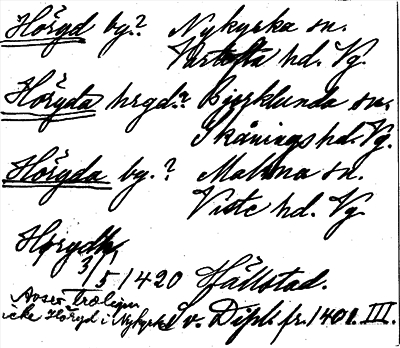 Höryd by.? Nykyrka sn.
Vartofta hd. Vg.
Höryda hrgd.? Bjerklunda sn.
Skånings hd. Vg.
Höryda by.? Malma sn.
Viste hd. Vg.
Horydh
3/5 1420 Hällstad.
Avser troligen
icke Höryd i Nykyrka v. Dipl. fr. 1401. III.